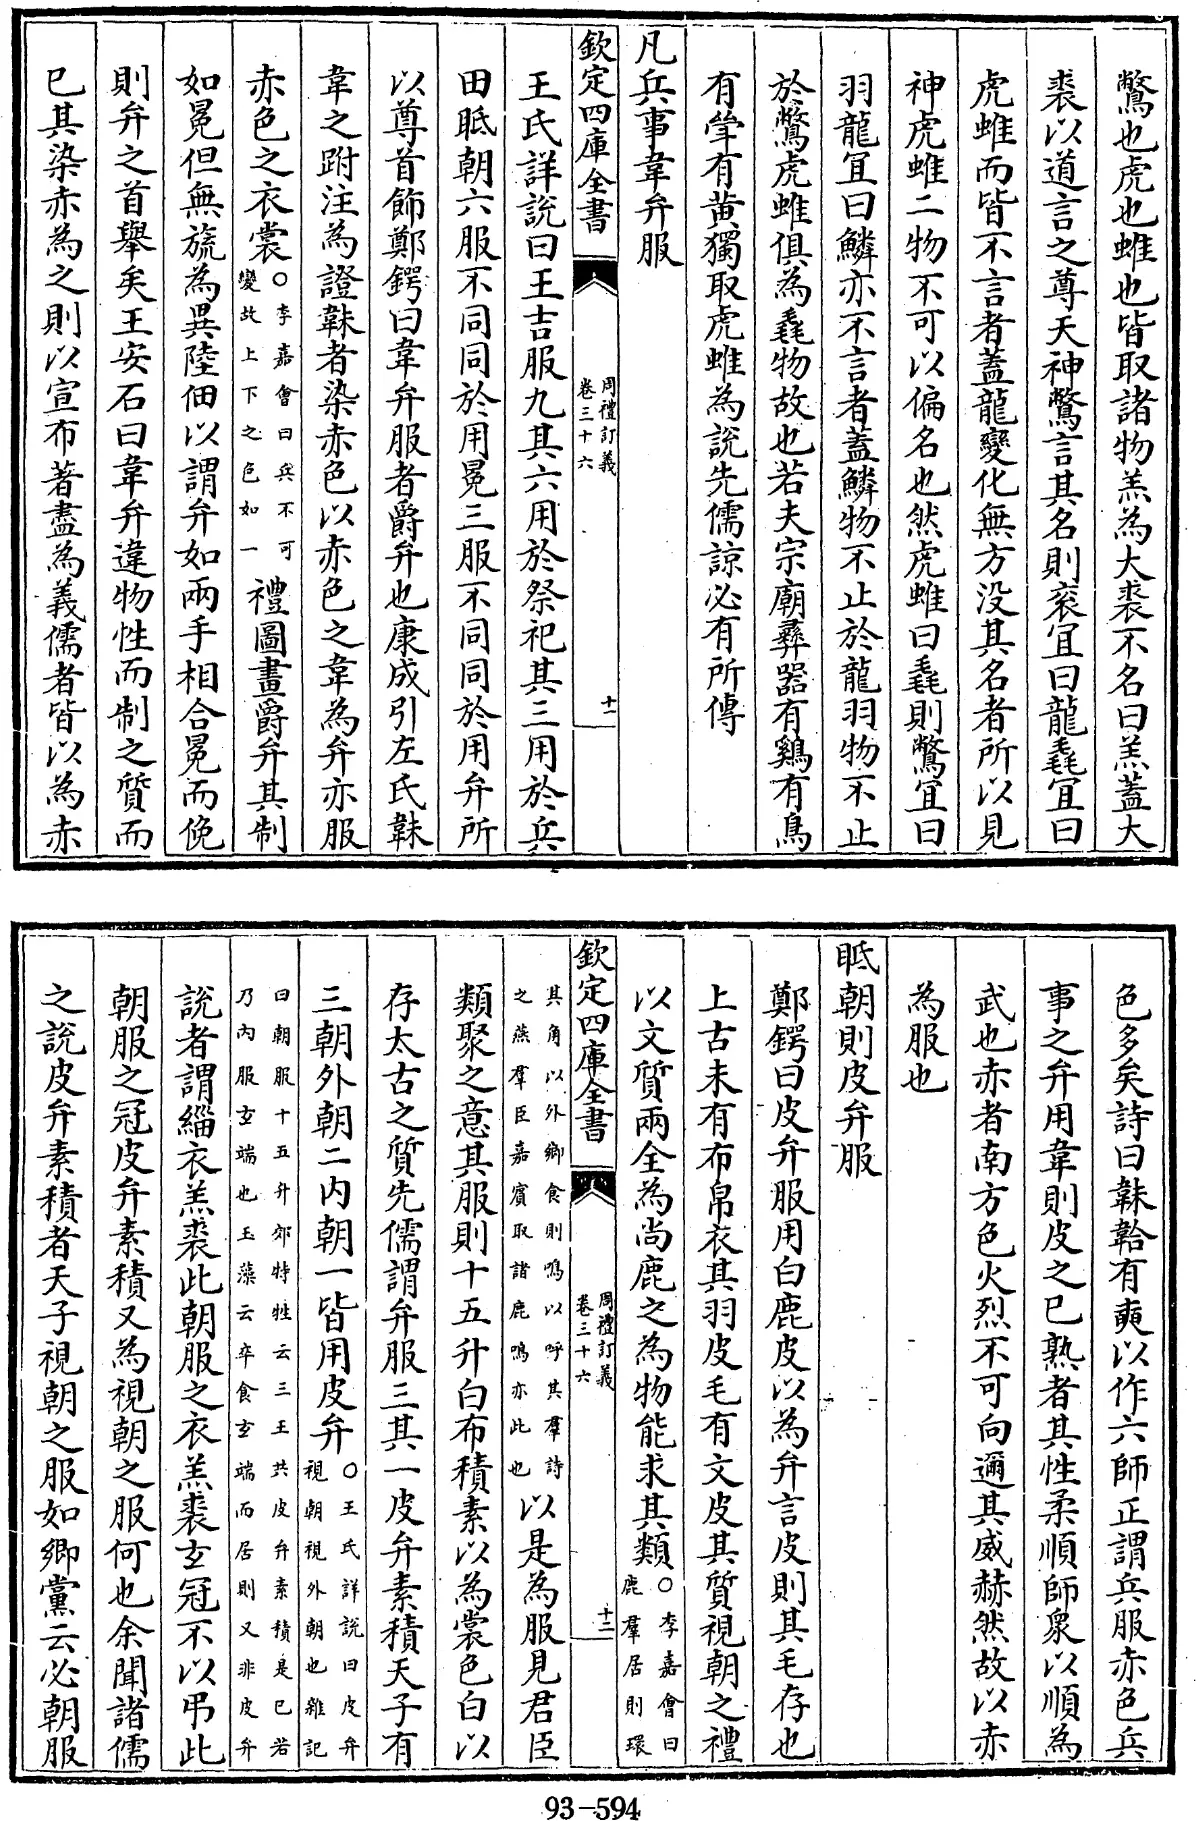 鷩也虎也蜼也皆取諸物羔為大裘不名曰羔蓋大
裘以道言之尊天神鷩言其名則衮宜曰龍毳宜曰
虎蜼而皆不言者蓋龍變化無方没其名者所以見
神虎蜼二物不可以偏名也然虎蜼曰毳則鷩宜曰
羽龍宜曰鱗亦不言者蓋鱗物不止於龍羽物不止
於鷩虎蜼俱為毳物故也若夫宗廟彝器有鷄有鳥
有斝有黄獨取虎蜼為說先儒諒必有所傳
凡兵事韋弁服
欽定四庫全書
周禮訂義
卷三十六
十一
王氏詳說曰王吉服九其六用於祭祀其三用於兵
田眡朝六服不同同於用冕三服不同同於用弁所
以尊首飾鄭鍔曰韋弁服者爵弁也康成引左氏韎
韋之跗注為證韎者染赤色以赤色之韋為弁亦服
赤色之衣裳○李嘉會曰兵不可變故上下之色如一禮圖畫爵弁其制
如冕但無旒為異陸佃以謂弁如兩手相合冕而俛
則弁之首舉矣王安石曰韋弁違物性而制之質而
已其染赤為之則以宣布著盡為義儒者皆以為赤
色多矣詩曰韎韐有奭以作六師正謂兵服赤色兵
事之弁用韋則皮之已熟者其性柔順師衆以順為
武也赤者南方色火烈不可向邇其威赫然故以赤
為服也
眡朝則皮弁服
鄭鍔曰皮弁服用白鹿皮以為弁言皮則其毛存也
上古未有布帛衣其羽皮毛有文皮其質視朝之禮
以文質兩全為尚鹿之為物能求其類○李嘉會曰鹿羣居則環
欽定四庫全書
周禮訂義
卷三十六
十二
其角以外鄉食則鳴以呼其羣詩之燕羣臣嘉賓取諸鹿鳴亦此也以是為服見君臣
類聚之意其服則十五升白布積素以為裳色白以
存太古之質先儒謂弁服三其一皮弁素積天子有
三朝外朝二内朝一皆用皮弁○王氏詳說曰皮弁視朝視外朝也雜記
曰朝服十五升郊特牲云三王共皮弁素積是已若乃内服玄端也玉藻云卒食玄端而居則又非皮弁
說者謂緇衣羔裘此朝服之衣羔裘玄冠不以弔此
朝服之冠皮弁素積又為視朝之服何也余聞諸儒
之說皮弁素積者天子視朝之服如鄉黨云必朝服
93-594